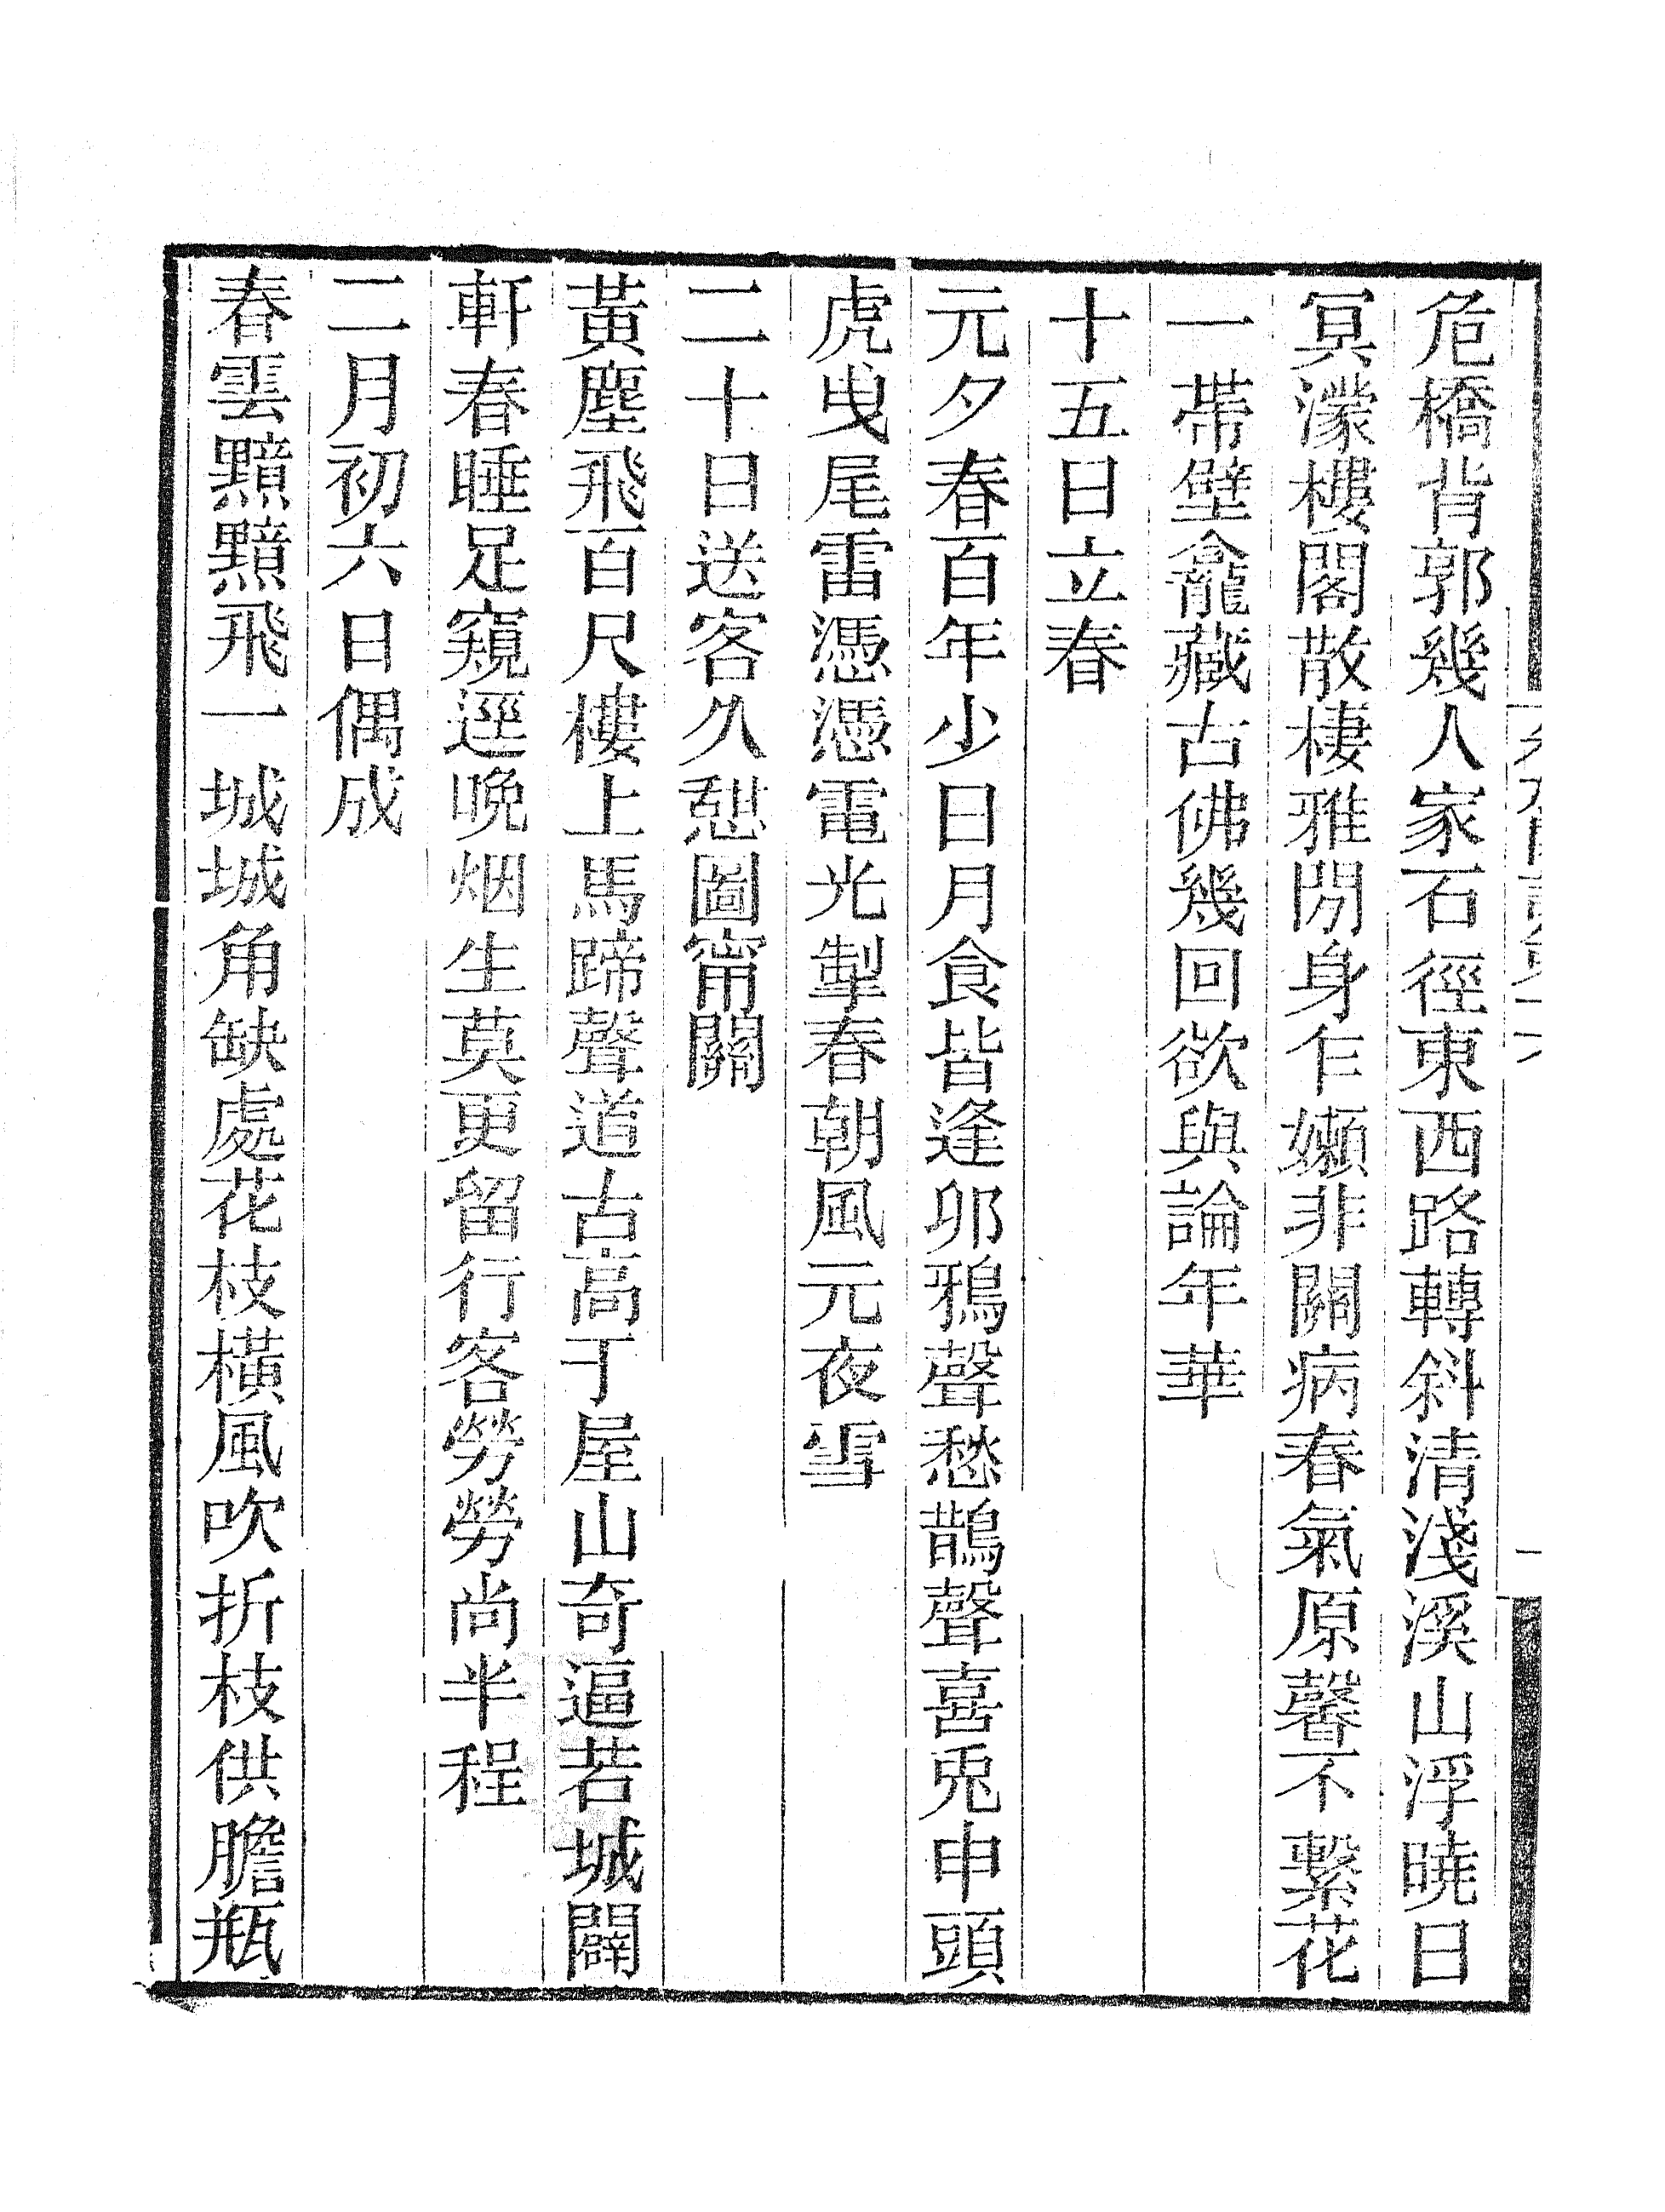 危橋背郭幾人家石徑東西路轉斜清淺溪山浮曉日
冥濛樓閣散棲雅閒身乍嬾非關病春氣原馨不繫花
一帶壁龕藏古佛幾回欲與論年華
十五日立春
元夕春百年少日月食皆逢卯鴉聲愁鵲聲喜兎申頭
虎曳尾雷憑憑電光掣春朝風元夜雪
二十日送客久憇圖甯關
黃塵飛百尺樓上馬蹄聲道古高于屋山奇逼若城闢
軒春睡足窺逕晩烟生莫更留行客勞勞尚半程
二月初六日偶成
春雲黯黯飛一城城角缺處花枝橫風吹折枝供膽瓶